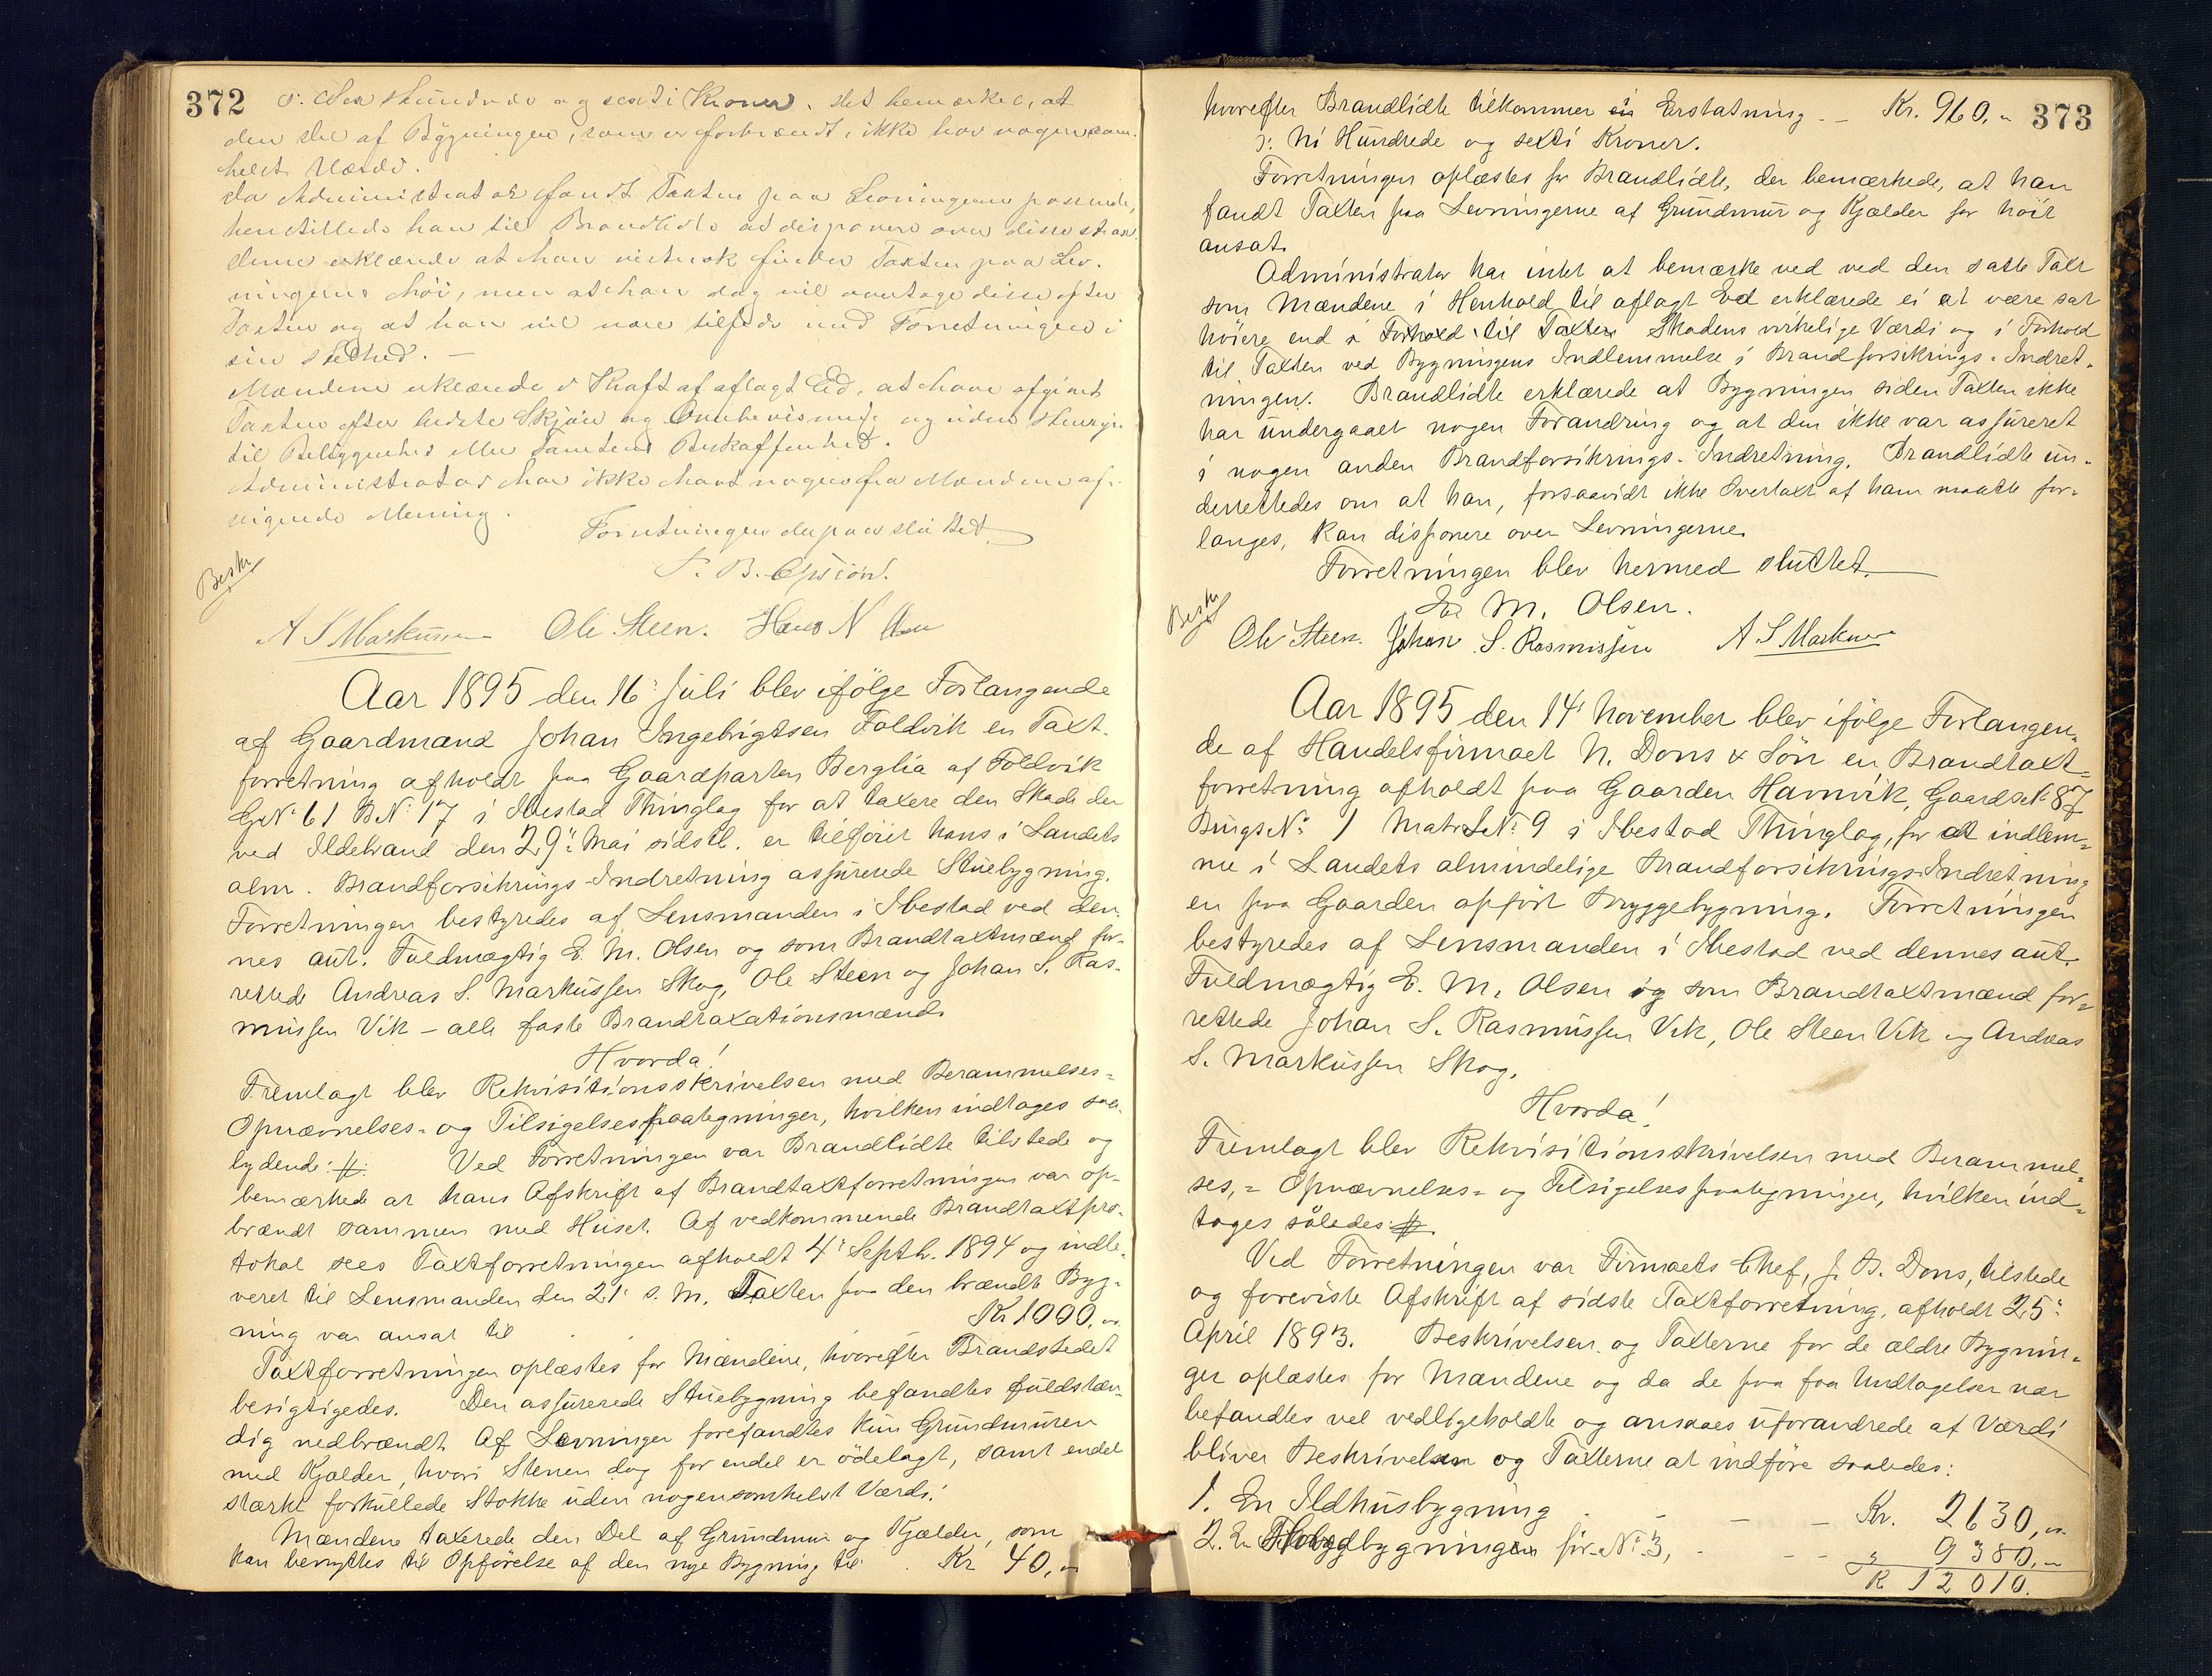 372
ɔ: Sex Hundrede og sexti Kroner. Det bemærkes, at
den Del af Bygningen, som er forbrændt, ikke har nogensom-
helst Værdi.
Da Administrator fandt Taxten paa Levningerne passende,
henstillede han til Brandlidte at disponere over disse strax.
denne erklærede at han vistnok finder Taxten paa Lev-
ningerne høi, men at han dog vil overtage disse efter
Taxten og at han vil være tilfreds med Forretningen i
sin Helhed. —
Mændene erklærede i Kraft af aflagt Eed, at have afgivet
Taxten efter bedste Skjøn og Overbevisning og uden Hensyn
til Beliggenhed eller Tomtens Beskaffenhed.
Administrator har ikke havt nogen fra Mændene af-
vigende Mening.
Forretningen derpaa sluttet.
Beskr
A S Markussen Ole Steen. Hans N
Aar 1895 den 16' Juli blev ifölge Forlangende
af Gaardmand Johan Ingebrigtsen Foldvik en Taxt-
forretning afholdt paa Gaardparten Berglia af Foldvik
GN: 61 BN: 17 i Ibestad Thinglag for at taxere den Skade der
ved Ildebrand den 29' Mai sidstl. er tilföiet hans i Landets
alm. Brandforsikrings-Indretning assurerede Stuebygning.
Forretningen bestyredes af Lensmanden i Ibestad ved den-
nes aut. Fuldmægtig E. M. Olsen og som Brandtaxtmænd for-
rettede Andreas S. Markussen Skog, Ole Steen og Johan S. Ras-
mussen Vik – alle faste Brandtaxationsmænd.
Hvorda!
Fremlagt blev Rekvisitionsskrivelsen med Berammelses-
Opnævnelses- og Tilsigelsespaategninger, hvilken indtages saa-
lydende: #: Ved Forretningen var Brandlidte tilstede og
bemærkede at hans Afskrift af Brandtaxtforretningen var op-
brændt sammen med Huset. Af vedkommende Brandtaxtpro-
tokol sees Taxtforretningen afholdt 4' Septb. 1894 og indle-
veret til Lensmanden den 21' s. M. Taxten paa den brændte Byg-
ning var ansat til . . . Kr 1000,00
Taxtforretningen oplæstes for Mændene, hvorefter Brandstedet
besigtigedes. Den assurerede Stuebygning befandtes fuldstæn-
dig nedbrændt. Af Levninger forefandtes kun Grundmuren
med Kjælder, hvori Stenen dog for endel er ödelagt, samt endel
stærkt forkullede Stokke uden nogensomhelst Værdi.
Mændene taxerede den Del af Grundmur og Kjælder, som
kan benyttes til Opförelse af den nye Bygning til . Kr 40,00
373
hvorefter Brandlidte tilkommer en Erstatning — Kr. 960,00
ɔ: Ni Hundrede og sexti Kroner.
Forretningen oplæstes for Brandlidte, der bemærkede, at han
fandt Taxten paa Levningerne af Grundmur og Kjælder for höit
ansat.
Administrator har intet at bemærke ved ved den satte Taxt
som Mændene i Henhold til aflagt Ed erklærede ei at være sat
höiere end i Forhold til Taxten Skadens virkelige Værdi og i Forhold
til Taxten ved Bygningens Indlemmelse i Brandforsikrings-Indret-
ningen. Brandlidte erklærede at Bygningen siden Taxten ikke
har undergaaet nogen Forandring og at den ikke var assureret
i nogen anden Brandforsikrings-Indretning. Brandlidte un-
derrettedes om at han, forsaavidt ikke Overtaxt af ham maatte for-
langes, kan disponere over Levningerne.
Forretningen blev hermed sluttet.
E. M. Olsen.
Beskr
Ole Steen. Johan S. Rasmussen A S Markussen
Aar 1895 den 14' November blev ifölge Forlangen-
de af Handelsfirmaet N. Dons & Sön en Brandtaxt-
forretning afholdt paa Gaarden Havnvik, Gaards N: 87
Brugs N: 1 Matr L N: 9 i Ibestad Thinglag, for at indlem-
me i Landets almindelige Brandforsikrings-Indretning
en paa Gaarden opfört Bryggebygning. Forretningen
bestyredes af Lensmanden i Ibestad ved dennes aut.
Fuldmægtig E. M. Olsen og som Brandtaxtmænd for-
rettede Johan S. Rasmussen Vik, Ole Steen Vik og Andreas
S. Markussen Skog.
Hvorda!
Fremlagt blev Rekvisitionsskrivelsen med Berammel-
ses,- Opnævnelses- og Tilsigelsespaategninger, hvilken ind-
tages således: #
Ved Forretningen var Firmaets Chef, J. B. Dons, tilstede
og foreviste Afskrift af sidste Taxtforretning, afholdt 25'
April 1893. Beskrivelsen og Taxterne for de ældre Bygnin-
ger oplæstes for Mændene og da de paa faa Undtagelser nær
befandtes vel vedligeholdte og ansaaes uforandrede af Værdi
bliver Beskrivelsen og Taxterne at indföre saaledes:
1. En Ildhusbygning . - - - Kr. 2630,00
2. En Hovedbygningen för N: 3, - - - " 9380,00
K 12010.